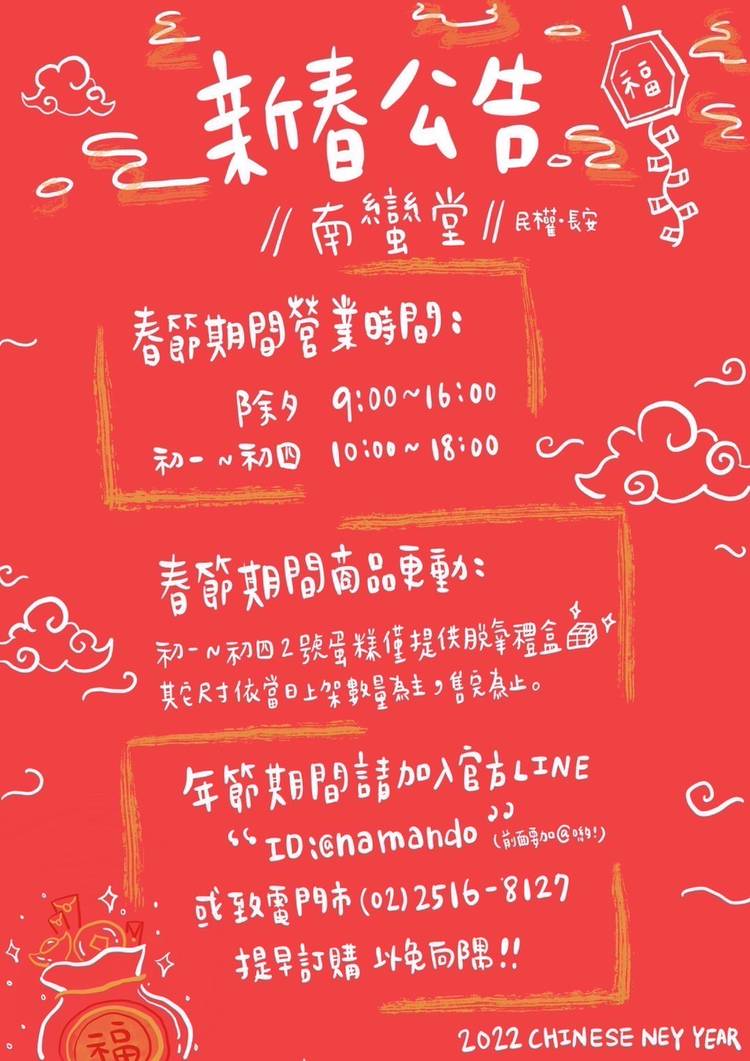 新春公告
福
//南蠻堂// 民權·長安
春節期間營業時間:
除夕 9:00~16:00
初一~初四 10:00~18:00
春節期間商品更動:
初一~初四2號蛋糕僅提供脫氧禮盒
其它尺寸依當日上架數量為主,售完為止。
年節期間請加入官方LINE
“ID:@namando” (前面要加@喲!)
或致電門市(02)2516-8127
提早訂購 以免向隅!!
福
2022 CHINESE NEY YEAR